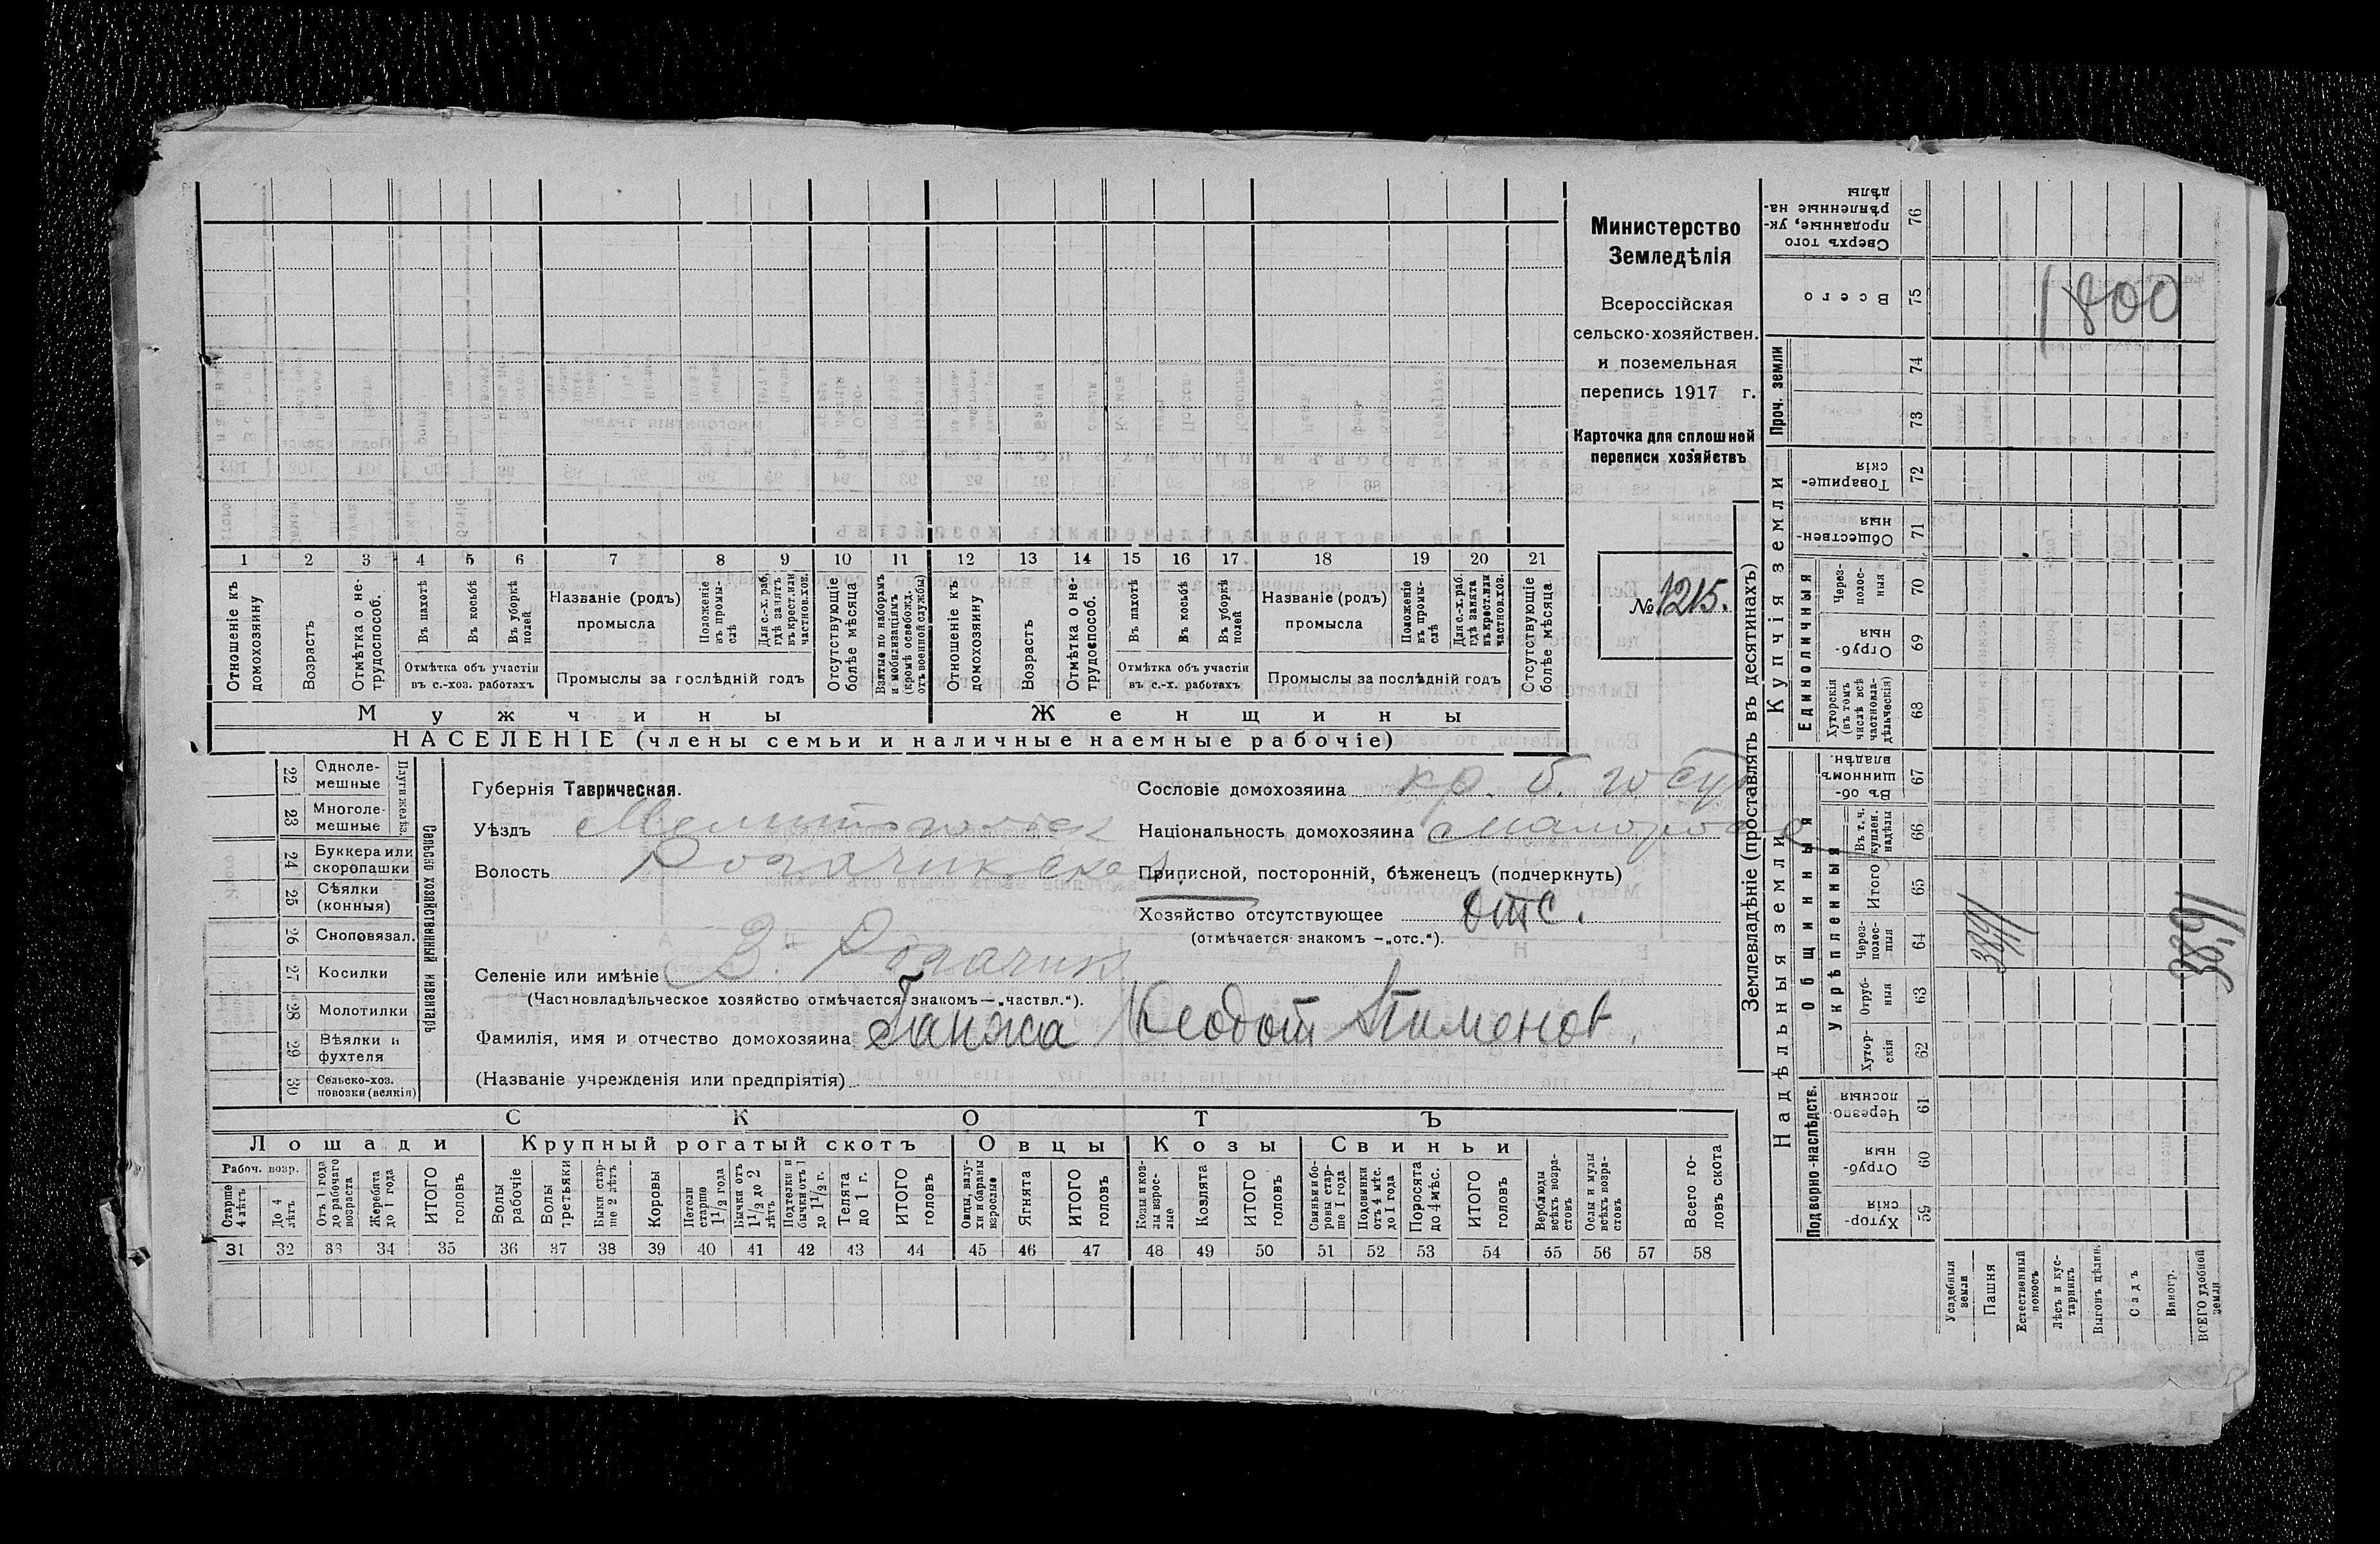 Министерство
Земледѣлія
Всероссійская
сельско-хозяйствен.
и поземельная
перепись 1917 г.
Карточка для сплошной
переписи хозяйствъ
№ 1215.
1 2 3 4 5 6 7 8 9 10 11 12 13 14 15 16 17 18 19 20 21
Отношеніе къ домохозяину
Возрастъ
Отмѣтка о не-трудоспособ.
Въ пахотѣ
Въ косьбѣ
Въ уборкѣ полей
Отмѣтка объ участіи
въ с.-хоз. работахъ
Названіе (родъ)
промысла
Положеніе въ промы-слѣ
Для с.-х. раб. гдѣ занятъ въ крест. или частнов. хоз.
Промыслы за послѣдній годъ
Отсутствующіе болѣе мѣсяца
Взятые по наборамъ и мобилизаціямъ (кромѣ освобожд. отъ военной службы)
Отношеніе къ домохозяину
Возрастъ
Отмѣтка о не-трудоспособ.
Въ пахотѣ
Въ косьбѣ
Въ уборкѣ полей
Отмѣтка объ участіи
въ с.-х. работахъ
Названіе (родъ)
промысла
Положеніе въ промы-слѣ
Для с.-х. раб. гдѣ занята въ крест. или частнов. хоз.
Промыслы за послѣдній годъ
Отсутствующіе болѣе мѣсяца
Мужчины
Женщины
НАСЕЛЕНІЕ (члены семьи и наличные наемные рабочіе)
22 Одноле-мешные
23 Многоле-мешные
Плуги желѣз.
24 Буккера или скоропашки
25 Сѣялки (конныя)
26 Сноповязал.
27 Косилки
28 Молотилки
29 Вѣялки и фухтеля
30 Сельско-хоз. повозки (всякія)
Сельско хозяйственный инвентарь
Губернія Таврическая.
Уѣздъ Мелитопольск
Волость Рогачикская
Селеніе или имѣніе В. Рогачик
(Частновладѣльческое хозяйство отмѣчается знакомъ—„частвл.“).
Фамилія, имя и отчество домохозяина Ганжа Феодот Пименов.
(Названіе учрежденія или предпріятія)
Сословіе домохозяина кр. б. госуд
Національность домохозяина малорос
Приписной, посторонній, бѣженецъ (подчеркнуть)
Хозяйство отсутствующее отс.
(отмѣчается знакомъ —„отс.“).
СКОТЪ
Лошади
Крупный рогатый скотъ
Овцы
Козы
Свиньи
Рабоч. возр.
Старше 4 лѣтъ
До 4 лѣтъ
Отъ 1 года до рабочаго возраста
Жеребята до 1 года
ИТОГО головъ
Волы рабочіе
Волы третьяки
Быки стар-ше 2 лѣтъ
Коровы
Нетели старше 1 1/2 года
Бычки отъ 1 1/2 до 2 лѣтъ
Подтелки и бычки отъ 1 до 1 1/2 г.
Телята до 1 г.
ИТОГО головъ
Овцы, валу-хи и бараны взрослые
Ягнята
ИТОГО головъ
Козы и коз-лы взрос-лые
Козлята
ИТОГО головъ
Свиньи и бо-ровы стар-ше 1 года
Подсвинки отъ 4 мѣс. до 1 года
Поросята до 4 мѣс.
ИТОГО головъ
Верблюды всѣхъ возра-стовъ
Ослы и мулы всѣхъ возра-стовъ
Всего го-ловъ скота
31 32 33 34 35 36 37 38 39 40 41 42 43 44 45 46 47 48 49 50 51 52 53 54 55 56 57 58
Землевладѣніе (проставлять въ десятинахъ)
Надѣльныя земли
Купчія земли
Проч. земли
Подворно-наслѣдств.
Общинныя
Укрѣпленныя
Единоличныя
Хутор-скія 59
Отруб-ныя 60
Черезпо-лосныя 61
Хутор-скія 62
Отруб-ныя 63
Через-полос-ныя 64
Итого 65
Въ т. ч. куплен. надѣлы 66
Въ об-щинномъ владѣн. 67
Хуторскія (въ томъ числѣ всѣ частновла-дѣльческія) 68
Отруб-ныя 69
Через-полос-ныя 70
Обществен-ныя 71
Товарище-скія 72
73
74
Всего 75
Сверхъ того проданные, ук-рѣпленные на-дѣлы 76
Усадебныя земли
Пашня
Естественный покосъ
Лѣсъ и кус-тарникъ
Выгонъ цѣлин.
Садъ
Виногр.
ВСЕГО удобной земли
1800